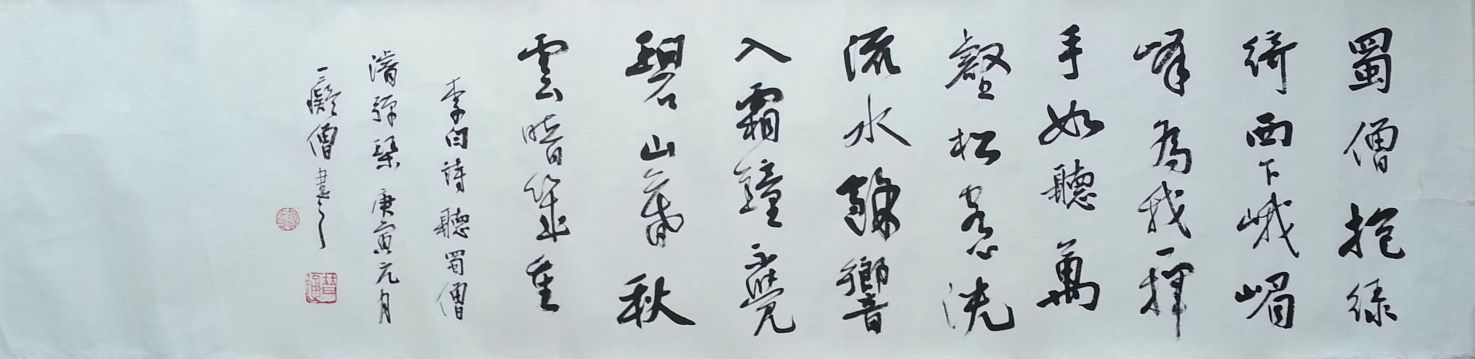 蜀僧抱綠
綺西下峨嵋
峰為我一揮
手如聽萬
壑松客心洗
流水餘響
入霜鐘不覺
碧山暮秋
雲暗幾重
李白詩聽蜀僧
濬彈琴庚寅元月
一癡僧書之